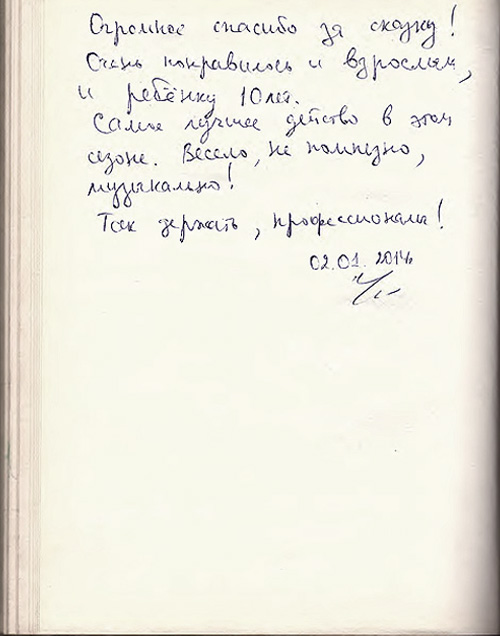 Огромное спасибо за сказку!
Очень понравилось и взрослым,
и ребёнку 10 лет.
Самое лучшее действо в этом
сезоне. Весело, не помпезно,
музыкально!
Так держать, профессионалы!
02.01.2014